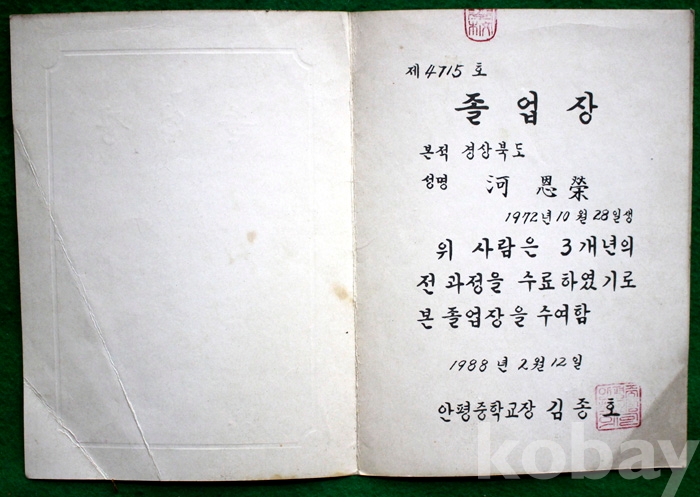 제 4715 호
졸 업 장
본적 경상북도
성명 河 恩 榮
1972년 10월 28일생
위 사람은 3개년의
전 과정을 수료하였기로
본 졸업장을 주여함
1988 년 2월 12일
안평중학교장 김 종 호
kobay